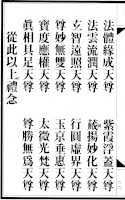 法體緣成天尊　紫霞浮蓋天尊
法雲流潤天尊　揚妙化天尊
玄智遠照天尊　行圓虛界天尊
尊妙無雙天尊　玉京垂惠天尊
寶度應權天尊　太微光梵天尊
眞相具足天尊　尊勝無爲天尊
從此以上禮念